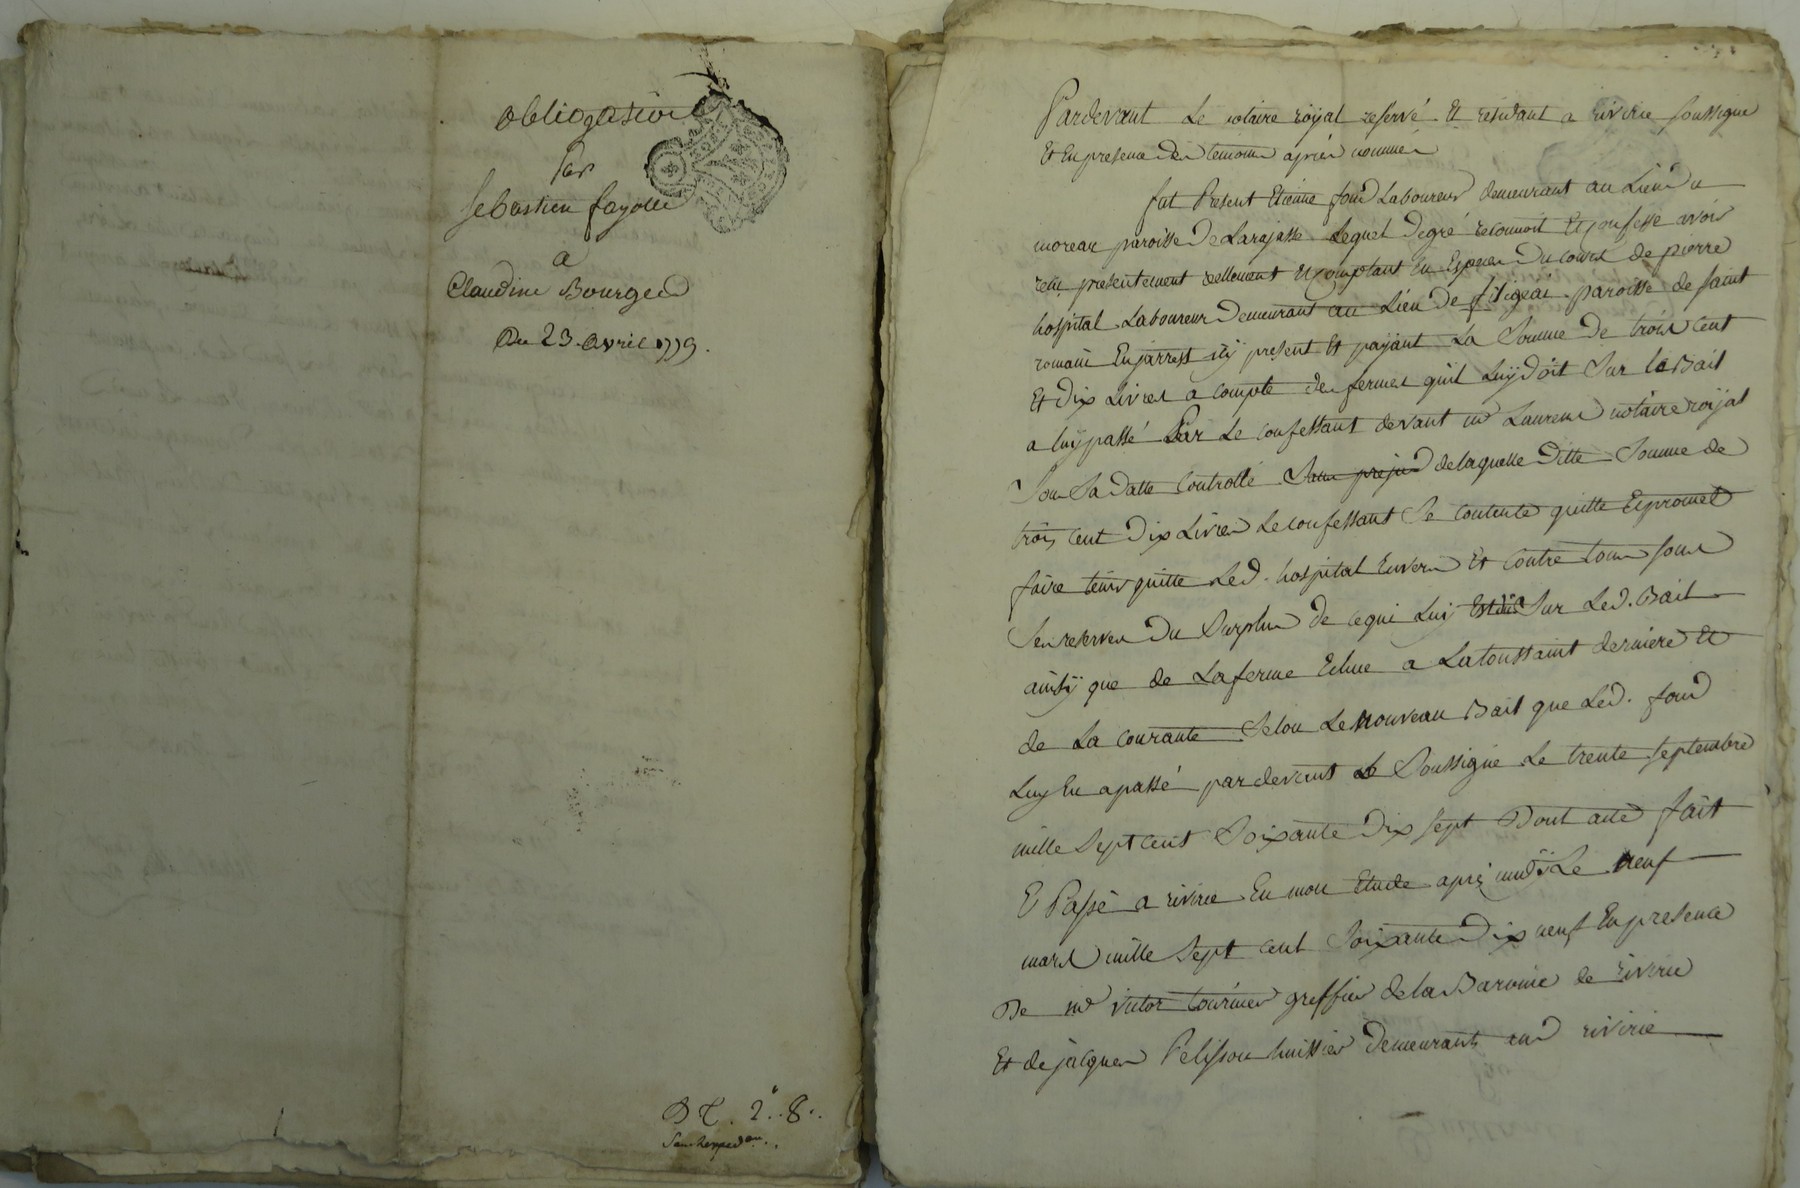 obligation
par
Sebastien fayolle
a
Claudine Bourgeu
Du 23. avril 1779.
D C. 2.. 8..
Pardevant Le notaire roÿal reservé Et residant a riverie soussigné
Et En presence des temoins apriès nommés
fut Present Etienne fond Laboureur demeurant au Lieu du
morear paroisse De Larajasse Lequel de gré reconnoit Et confesse avoir
reçu presentement reellement Et Comptant En Especes Du cours de pierre
hospital Laboureur Demeurant au Lieu De paroisse de saint
romain En jarrest icy present Et païant La Somme De trois cent
Et Dix Livres a compte des fermes quil Luÿ Doit Sur le Bail
a luÿ passé Par Le confessant devant me Laurens notaire roÿal
Sous Sa Datte Controllé Sans prejud de laquelle Ditte Somme de
trois cent Dix Livres Le confessant Se contente quitte Et promet
faire tenir quitte Led. hospital Envers Et Contre tous sous
Ses reserves Du Surplus De ce qui Luy Est dû Sur Led. Bail
ainsÿ que de La ferme Echue a La toussaint derniere Et
de La courante Selon Le nouveau Bail que Led. fond
Luy En a passé par devant Le Soussigné Le trente Septembre
mille Sept cent Soixante Dix Sept Dont acte fait
E Passé a riverie En mon Etude après midÿ Le neuf
mars mille Sept cent Soixante Dix neuf En presence
De me victor tournier greffier de la Baronie de riverie
Et de jacques Pelisson huissier Demeurants aud riverie